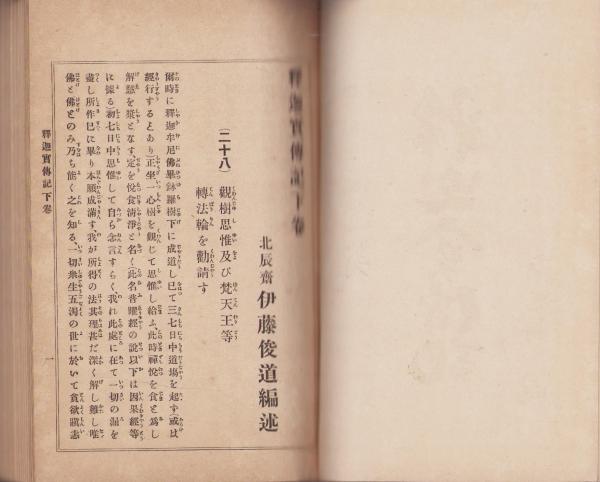 釋迦實傳記下卷
北辰齋 伊藤俊道編述
(二十八) 觀樹思惟及び梵天王等
轉法輪を勸請す
爾時に釋迦牟尼佛畢鉢羅樹下に成道し已て三七日中道場を起す(或は
經行するとあり)正坐一心樹を觀じて思惟し給ふ、此時禪悅を食と爲し
解慧を漿となす、定を悅食淸淨と名く(此名普曜經の說以下は因果經等
に據る)初七日中思惟して自ら念言すらく、我れ此處に在て一切の漏を
盡し所作已に畢り本願成滿す、我が所得の法其理甚だ深く解し難し唯
佛と佛とのみ乃ち能く之を知る、一切衆生五濁の世に於いて貪欲瞋恚
釋迦實傳記下卷
一